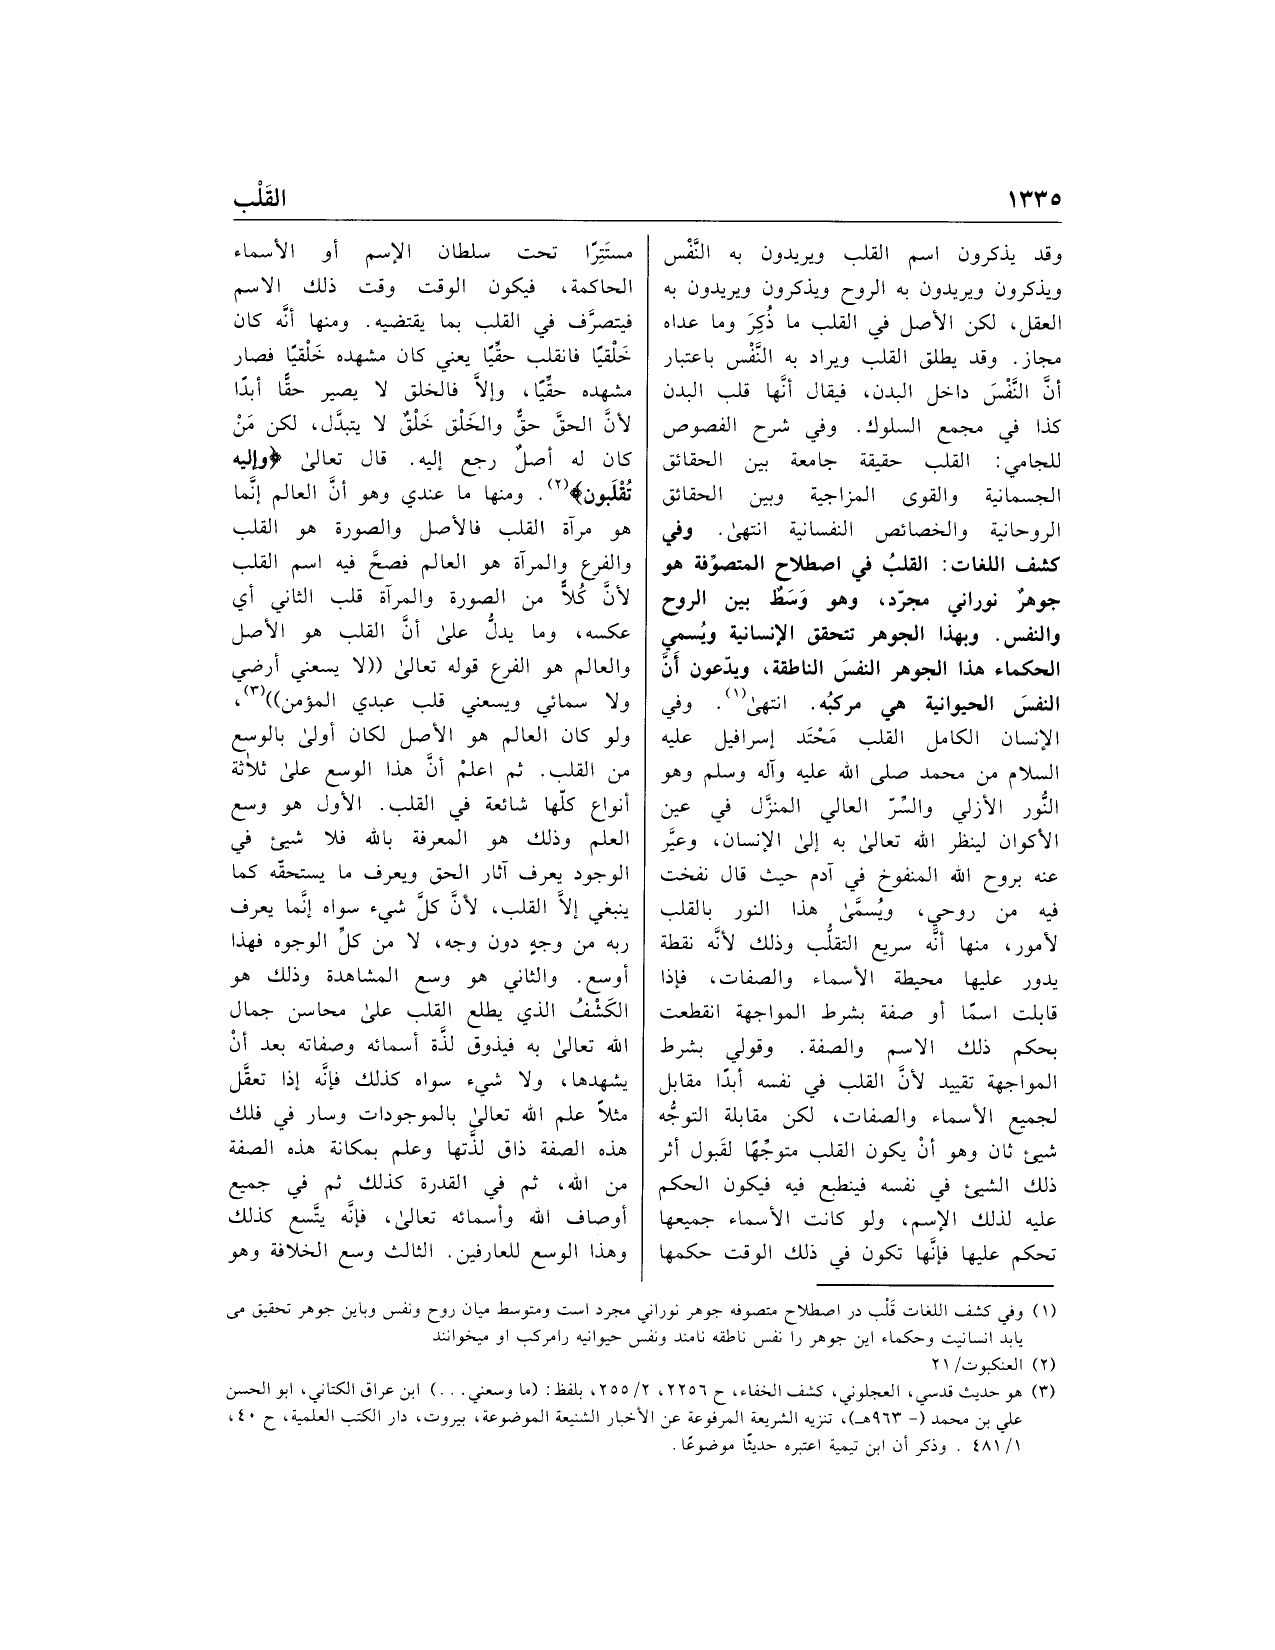 ١٣٣٥
القَلْب
وقد يذكرون اسم القلب ويريدون به النَّفْس
ويذكرون ويريدون به الروح ويذكرون ويريدون به
العقل، لكن الأصل في القلب ما ذُكِرَ وما عداه
مجاز. وقد يطلق القلب ويراد به النَّفْس باعتبار
أنَّ النَّفْسَ داخل البدن، فيقال أنَّها قلب البدن
كذا في مجمع السلوك. وفي شرح الفصوص
للجامي: القلب حقيقة جامعة بين الحقائق
الجسمانية والقوى المزاجية وبين الحقائق
الروحانية والخصائص النفسانية انتهىٰ. وفي
كشف اللغات: القلبُ في اصطلاح المتصوِّفة هو
جوهرٌ نوراني مجرّد، وهو وَسَطٌ بين الروح
والنفس. وبهذا الجوهر تتحقق الإنسانية ويُسمي
الحكماء هذا الجوهر النفسَ الناطقة، ويدّعون أَنَّ
النفسَ الحيوانية هي مركبُه. انتهىٰ(١). وفي
الإنسان الكامل القلب مَحْتَد إسرافيل عليه
السلام من محمد صلى الله عليه وآله وسلم وهو
النُّور الأزلي والسِّرّ العالي المنزَّل في عين
الأكوان لينظر الله تعالىٰ به إلىٰ الإنسان، وعبَّر
عنه بروح الله المنفوخ في آدم حيث قال نفخت
فيه من روحي، ويُسمَّىٰ هذا النور بالقلب
لأمور، منها أنَّه سريع التقلُّب وذلك لأنَّه نقطة
يدور عليها محيطة الأسماء والصفات، فإذا
قابلت اسمًا أو صفة بشرط المواجهة انقطعت
بحكم ذلك الاسم والصفة. وقولي بشرط
المواجهة تقييد لأنَّ القلب في نفسه أبدًا مقابل
لجميع الأسماء والصفات، لكن مقابلة التوجُّه
شيئ ثان وهو أنْ يكون القلب متوجِّهًا لقَبول أثر
ذلك الشيئ في نفسه فينطبع فيه فيكون الحكم
عليه لذلك الإسم، ولو كانت الأسماء جميعها
تحكم عليها فإنَّها تكون في ذلك الوقت حكمها
مستَتِرًا تحت سلطان الإسم أو الأسماء
الحاكمة، فيكون الوقت وقت ذلك الاسم
فيتصرَّف في القلب بما يقتضيه. ومنها أنَّه كان
خَلْقيًا فانقلب حقِّيًا يعني كان مشهده خَلْقيًا فصار
مشهده حقِّيًا، وإلاَّ فالخلق لا يصير حقًّا أبدًا
لأنَّ الحقَّ حقٌّ والخَلْق خَلْقٌ لا يتبدَّل، لكن مَنْ
كان له أصلٌ رجع إليه. قال تعالىٰ ﴿وإليه
تُقْلَبون﴾(٢). ومنها ما عندي وهو أنَّ العالم إنَّما
هو مرآة القلب فالأصل والصورة هو القلب
والفرع والمرآة هو العالم فصحَّ فيه اسم القلب
لأنَّ كُلاًّ من الصورة والمرآة قلب الثاني أي
عكسه، وما يدلُّ علىٰ أنَّ القلب هو الأصل
والعالم هو الفرع قوله تعالىٰ ((لا يسعني أرضي
ولا سمائي ويسعني قلب عبدي المؤمن))(٣)،
ولو كان العالم هو الأصل لكان أولىٰ بالوسع
من القلب. ثم اعلمْ أنَّ هذا الوسع علىٰ ثلاثة
أنواع كلّها شائعة في القلب. الأول هو وسع
العلم وذلك هو المعرفة بالله فلا شيئ في
الوجود يعرف آثار الحق ويعرف ما يستحقّه كما
ينبغي إلاَّ القلب، لأنَّ كلَّ شيء سواه إنَّما يعرف
ربه من وجهٍ دون وجه، لا من كلِّ الوجوه فهذا
أوسع. والثاني هو وسع المشاهدة وذلك هو
الكَشْفُ الذي يطلع القلب علىٰ محاسن جمال
الله تعالىٰ به فيذوق لذَّة أسمائه وصفاته بعد أنْ
يشهدها، ولا شيء سواه كذلك فإنَّه إذا تعقَّل
مثلاً علم الله تعالىٰ بالموجودات وسار في فلك
هذه الصفة ذاق لذَّتها وعلم بمكانة هذه الصفة
من الله، ثم في القدرة كذلك ثم في جميع
أوصاف الله وأسمائه تعالىٰ، فإنَّه يتَّسع كذلك
وهذا الوسع للعارفين. الثالث وسع الخلافة وهو
(١) وفي كشف اللغات قَلْب در اصطلاح متصوفه جوهر نوراني مجرد است ومتوسط ميان روح ونفس وباين جوهر تحقيق مى
يابد انسانيت وحكماء اين جوهر را نفس ناطقه نامند ونفس حيوانيه رامركب او ميخوانند
(٢) العنكبوت/ ٢١
(٣) هو حديث قدسي، العجلوني، كشف الخفاء، ح ٢٢٥٦، ٢/ ٢٥٥، بلفظ: (ما وسعني...) ابن عراق الكتاني، ابو الحسن
علي بن محمد (- ٩٦٣هـ)، تنزيه الشريعة المرفوعة عن الأخبار الشنيعة الموضوعة، بيروت، دار الكتب العلمية، ح ٤٠،
١/ ٤٨١ . وذكر أن ابن تيمية اعتبره حديثًا موضوعًا.